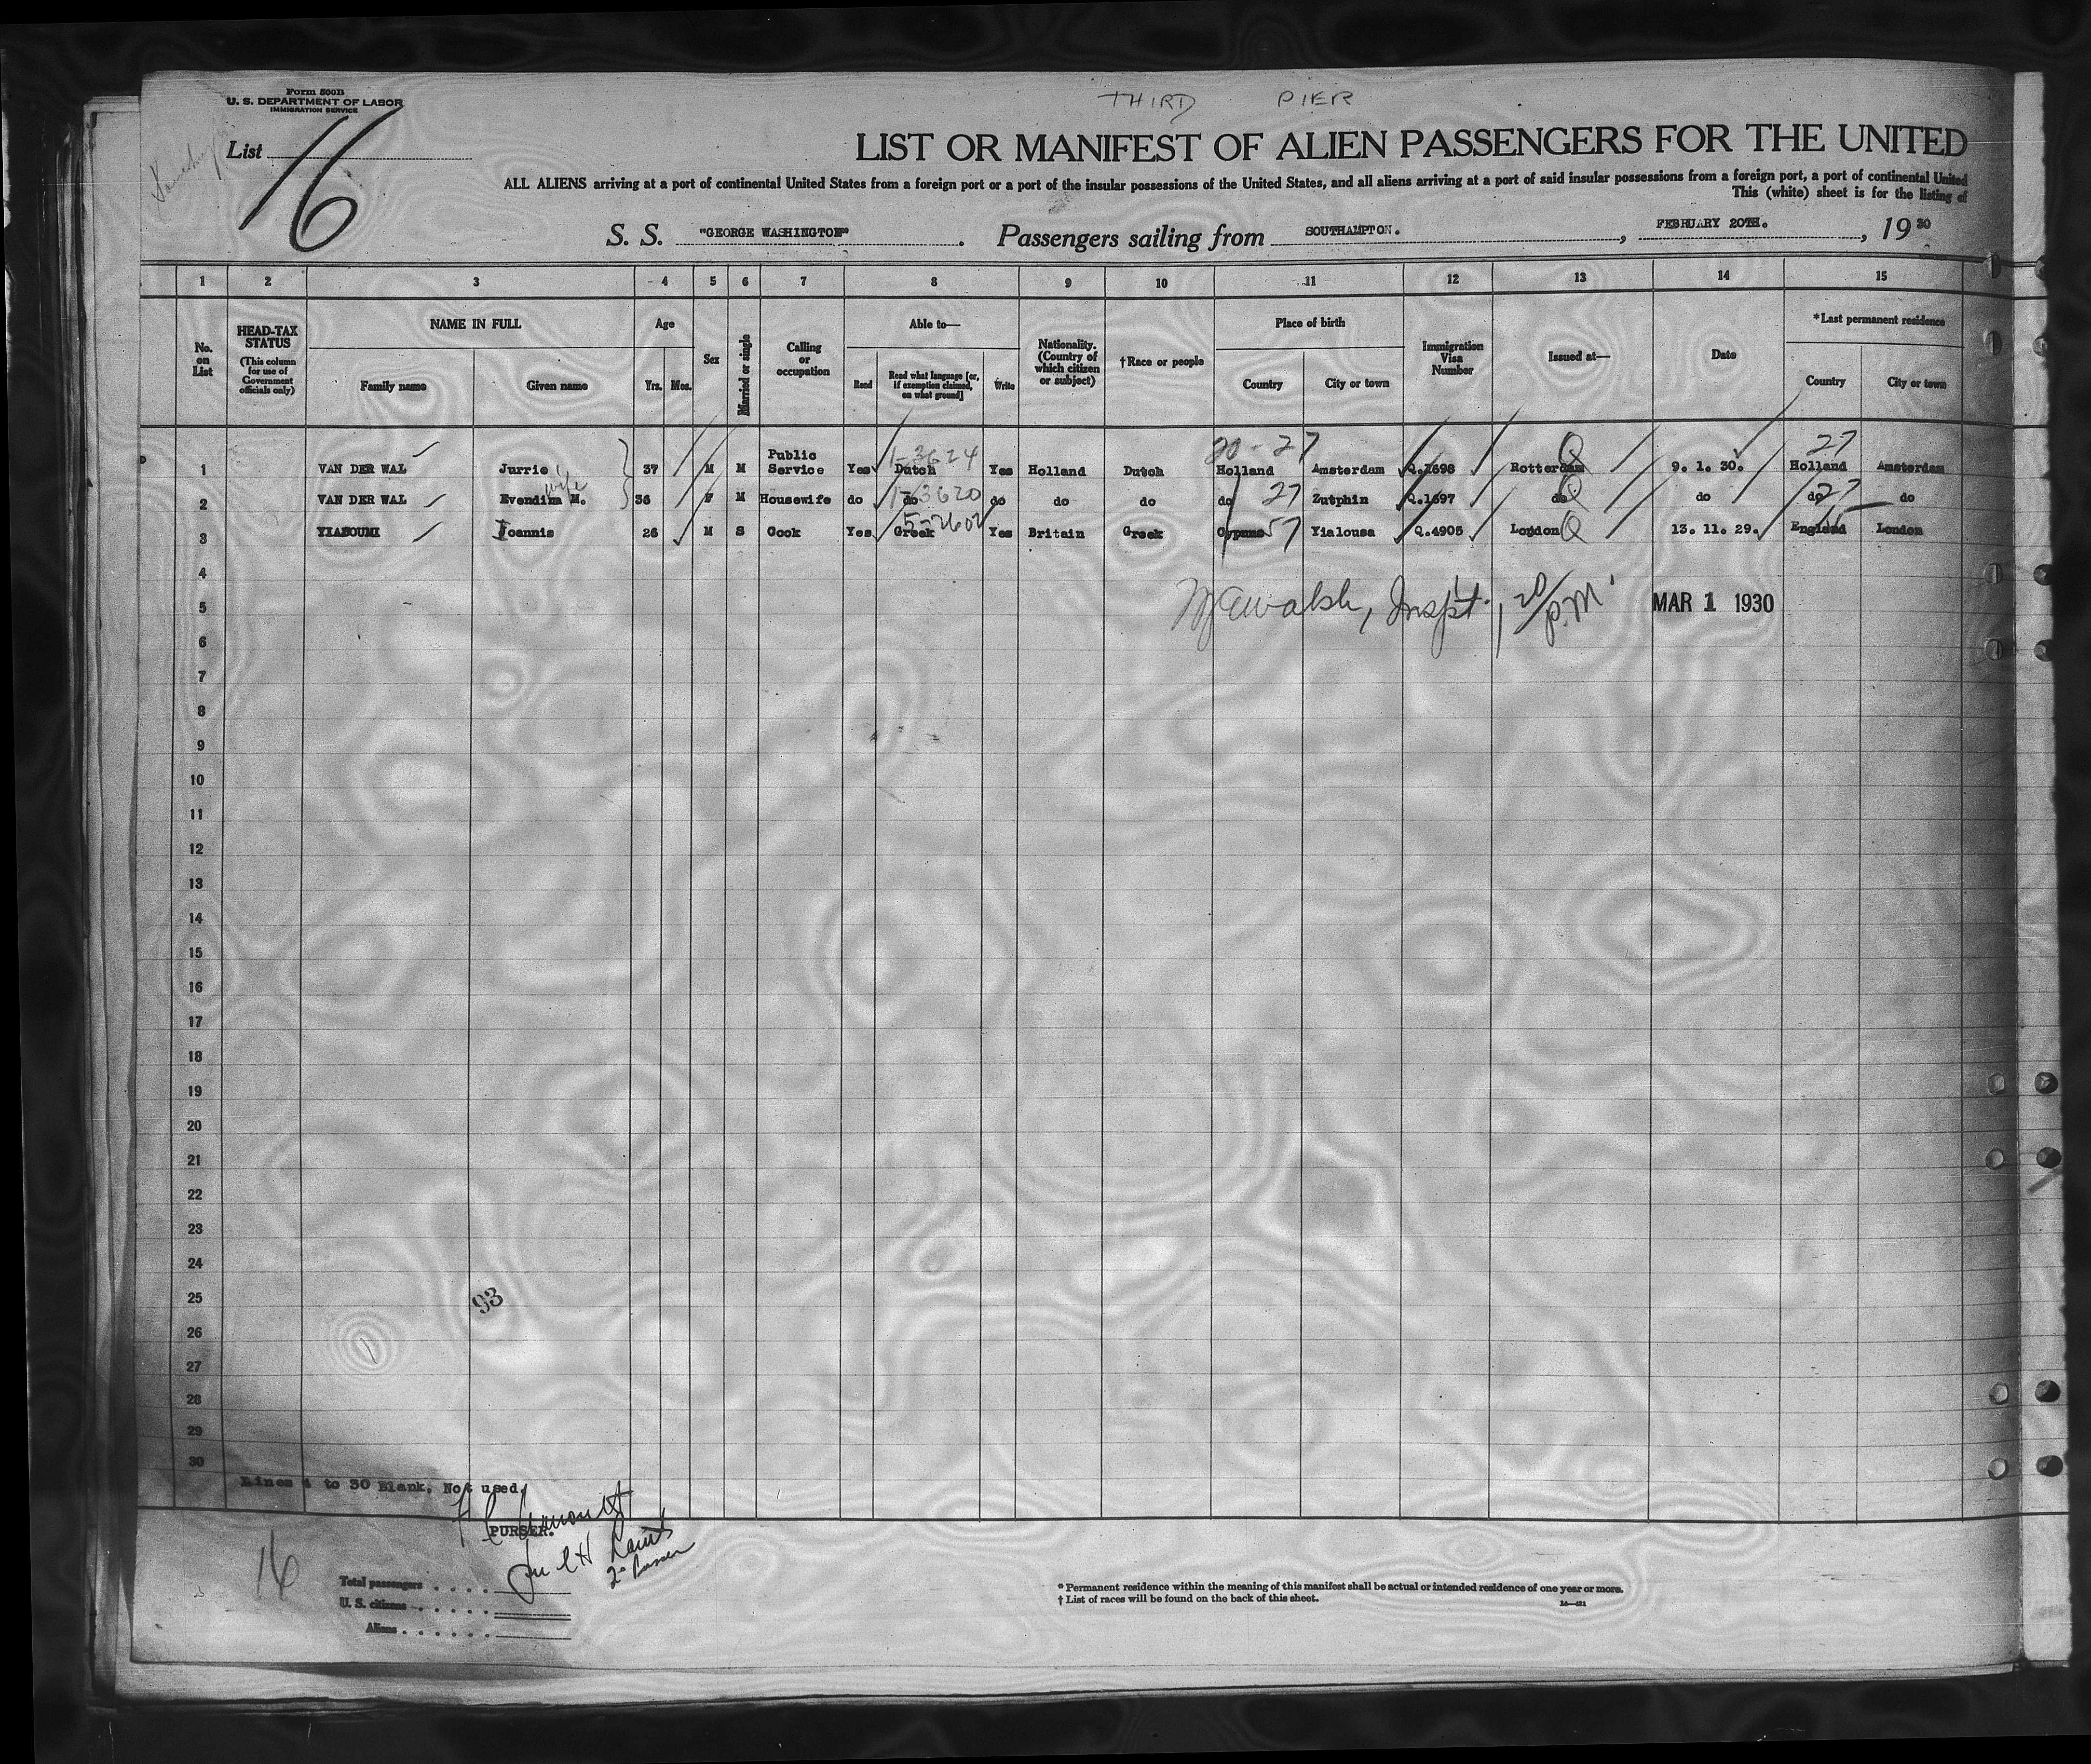 THIRD PIER
Form 500B
U. S. DEPARTMENT OF LABOR
IMMIGRATION SERVICE
List 16
LIST OR MANIFEST OF ALIEN PASSENGERS FOR THE UNITED
ALL ALIENS arriving at a port of continental United States from a foreign port or a port of the insular possessions of the United States, and all aliens arriving at a port of said insular possessions from a foreign port, a port of continental United
This (white) sheet is for the listing of
S. S. "GEORGE WASHINGTON". Passengers sailing from SOUTHAMPTON., FEBRUARY 20TH., 1930
1 2 3 4 5 6 7 8 9 10 11 12 13 14 15
No. on List
HEAD-TAX STATUS (This column for use of Government officials only)
NAME IN FULL
Family name Given name
Age
Yrs. Mos.
Sex
Married or single
Calling or occupation
Able to—
Read Read what language [or, if exemption claimed, on what ground] Write
Nationality. (Country of which citizen or subject)
†Race or people
Place of birth
Country City or town
Immigration Visa Number
Issued at—
Date
*Last permanent residence
Country City or town
1-3624 20-27 Q 27
1 VAN DER WAL Jurrie 37 M M Public Service Yes Dutch Yes Holland Dutch Holland Amsterdam Q.1698 Rotterdam 9. 1. 30. Holland Amsterdam
wife 1-3620 27 Q 27
2 VAN DER WAL Evendina M. 36 F M Housewife do do do do do do Zutphin Q.1697 do do do do
5-2602 57 Q
3 YIANOUMI Joannis 26 M S Cook Yes Greek Yes Britain Greek Cyprus Yialousa Q.4905 London 13. 11. 29. England London
4
5 Inspt. 1 20/p.m. MAR 1 1930
6
7
8
9
10
11
12
13
14
15
16
17
18
19
20
21
22
23
24
25 93
26
27
28
29
30
Lines 4 to 30 Blank, Not used.
PURSER.
16
Total passengers
U. S. citizens
Aliens
* Permanent residence within the meaning of this manifest shall be actual or intended residence of one year or more.
† List of races will be found on the back of this sheet.